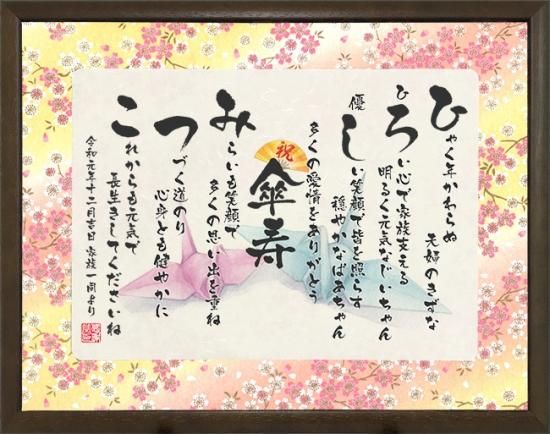 ひゃく年かわらぬ
夫婦のきずな
ひろい心で家族支える
明るく元気なじいちゃん
優しい笑顔で皆を照らす
穏やかなばあちゃん
多くの愛情をありがとう
祝
傘寿
みらいも笑顔で
多くの思い出を重ね
つづく道のり
心身とも健やかに
これからも元気で
長生きしてくださいね
令和元年十二月吉日 家族一同より